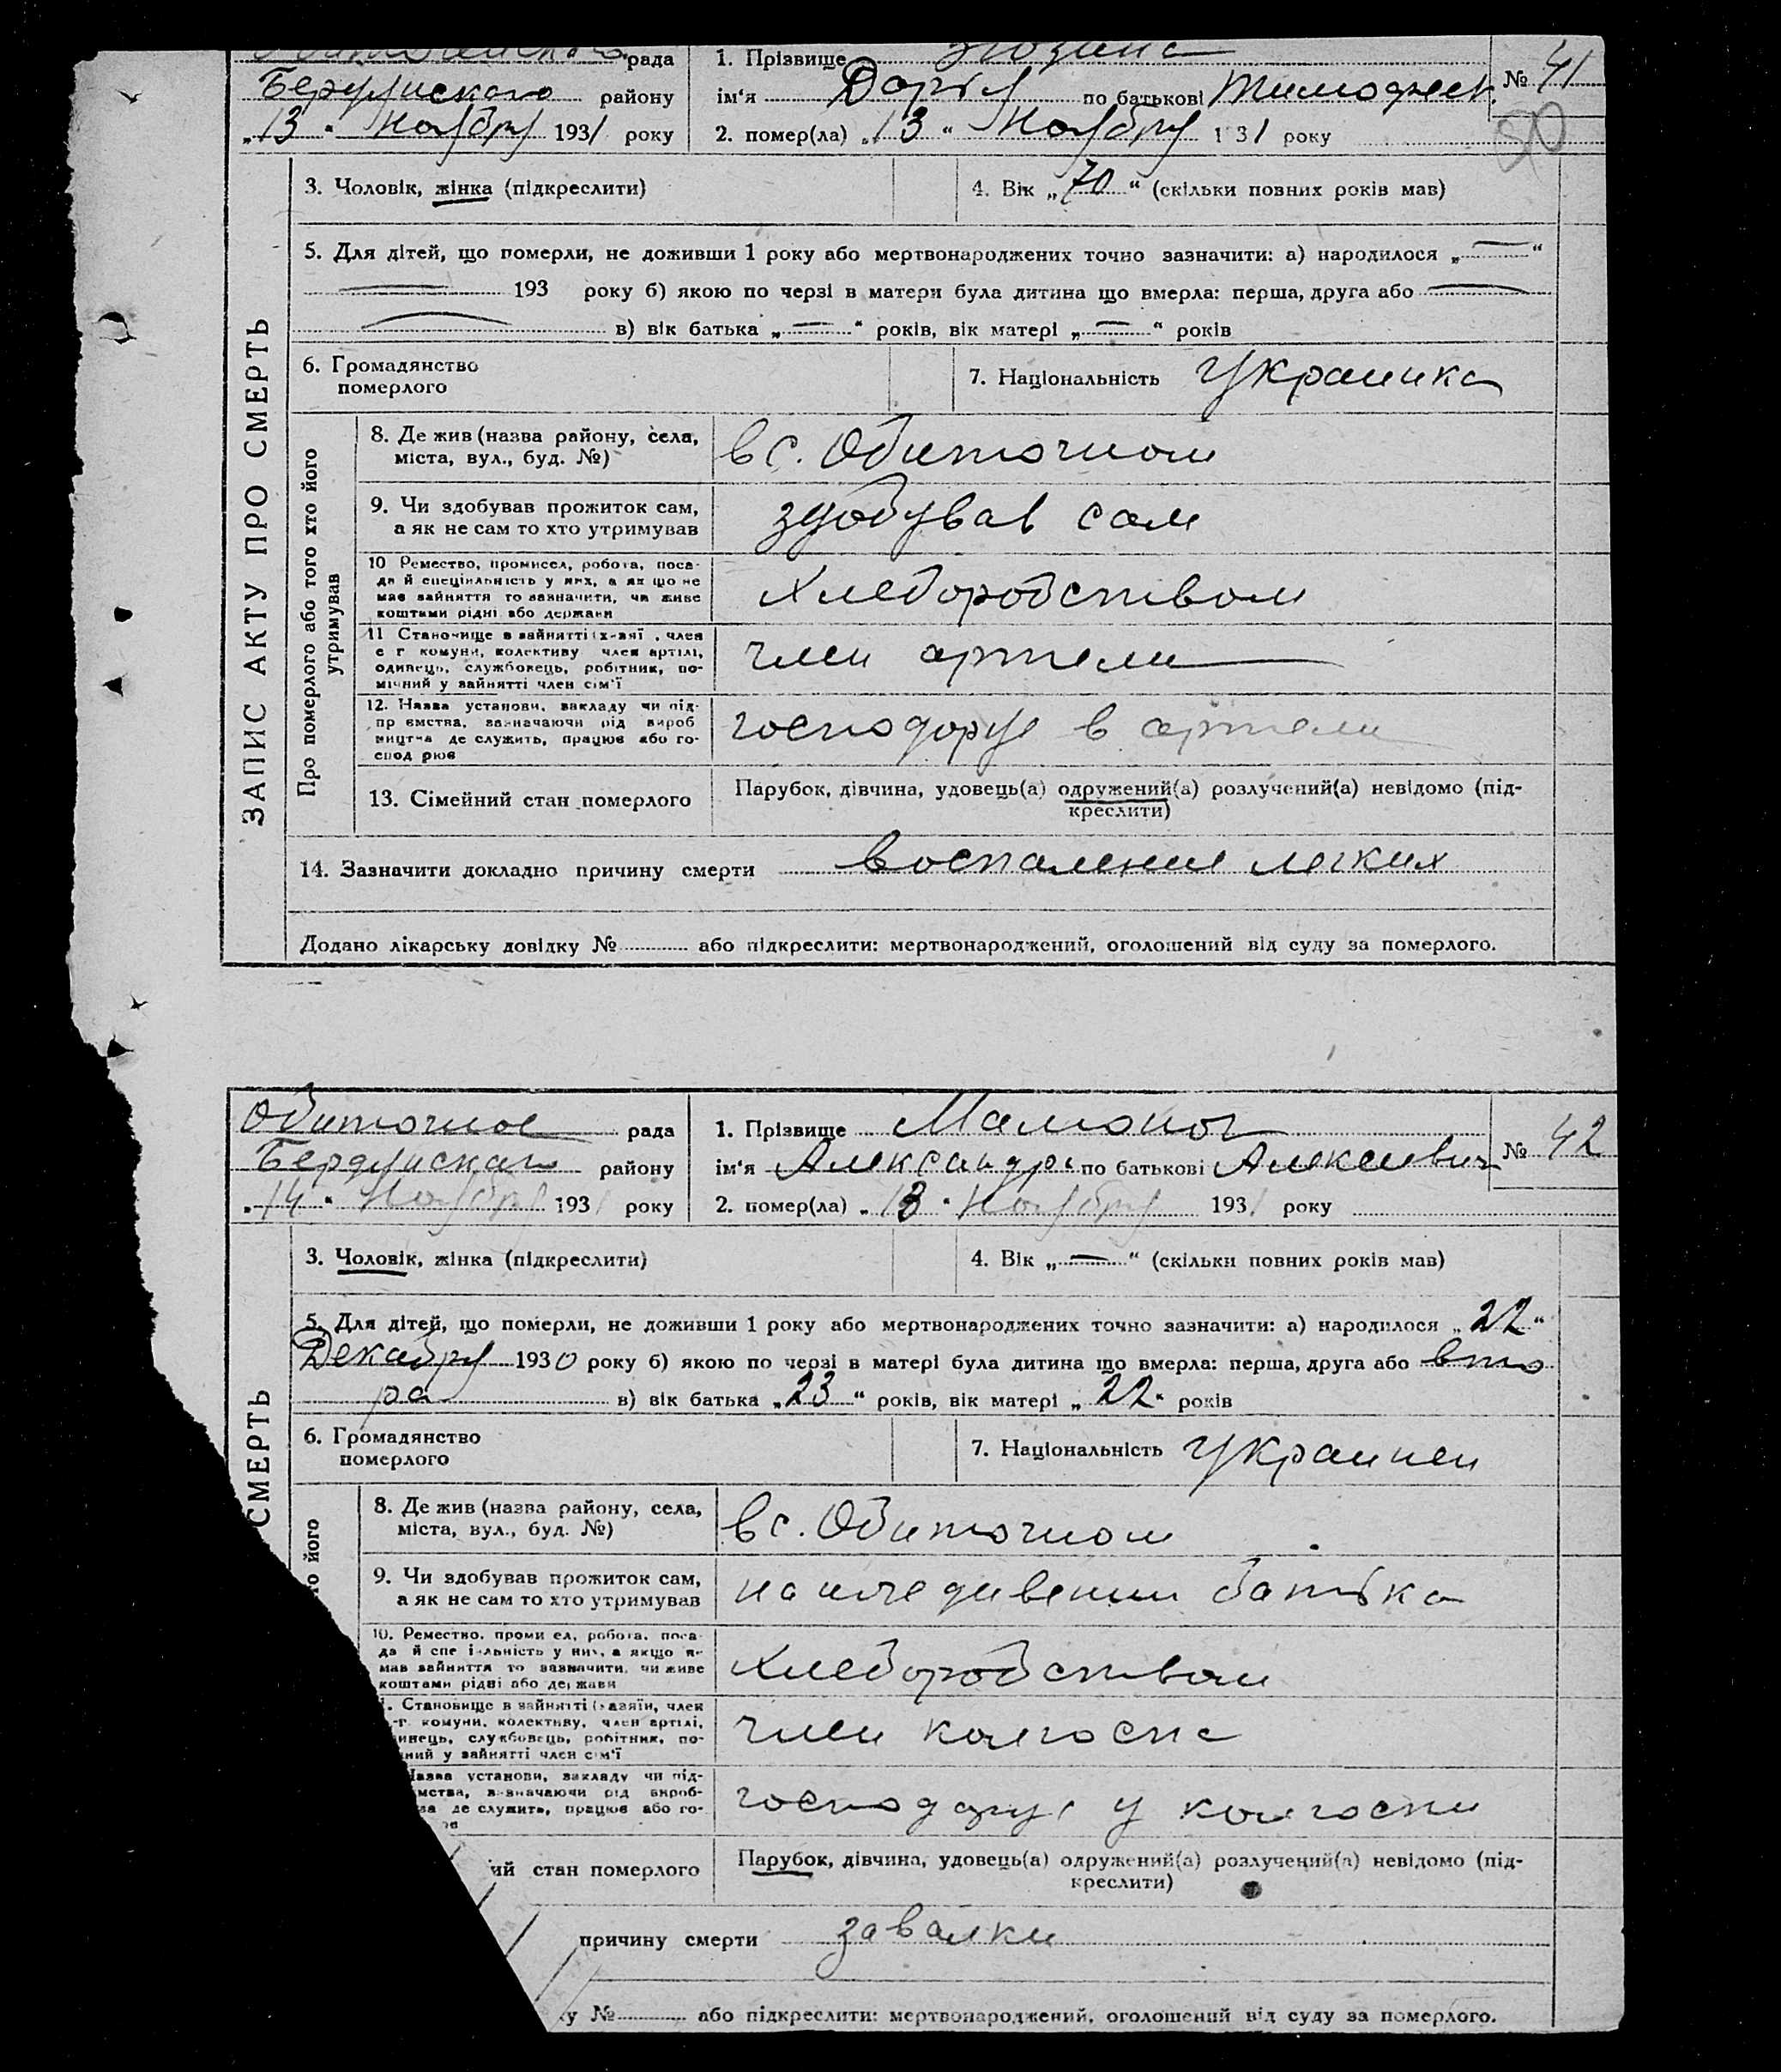 рада 1. Прізвище № 41
Бердянского району ім'я Дарія по батькові Тимофеев.
„13" Ноября 1931 року 2. помер(ла) „13" Ноября 1931 року 50
ЗАПИС АКТУ ПРО СМЕРТЬ
3. Чоловік, жінка (підкреслити) 4. Вік „70" (скільки повних років мав)
5. Для дітей, що померли, не доживши 1 року або мертвонароджених точно зазначити: а) народилося „—"
— 193 року б) якою по черзі в матери була дитина що вмерла: перша, друга або —
— в) вік батька „—" років, вік матері „—" років
6. Громадянство
померлого
7. Національність Украинка
Про померлого або того хто його
утримував
8. Де жив (назва району, села,
міста, вул., буд. №)
в с. Обиточном
9. Чи здобував прожиток сам,
а як не сам то хто утримував
здобував сам
10 Ремество, промисел, робота, поса-
да й спеціяльність у них, а як що не
мав зайняття то зазначити, чи живе
коштами рідні або держави
Хлебородством
11 Становище в зайнятті (х-зяї , член
с г комуни, колективу член артілі,
одинець, службовець, робітник, по-
мічний у зайнятті член сім'ї
член артели
12. Назва установи, закладу чи під-
пр ємства, зазначаючи рід вироб
ництва де служить, працює або го-
спод рює
господорує в артели
13. Сімейний стан померлого
Парубок, дівчина, удовець(а) одружений(а) розлучений(а) невідомо (під-
креслити)
14. Зазначити докладно причину смерти воспаление легких
Додано лікарську довідку № або підкреслити: мертвонароджений, оголошений від суду за померлого.
Обиточное рада 1. Прізвище № 42
Бердянскаго району ім'я Александр по батькові Алексеевич
„14" Ноября 1931 року 2. помер(ла) „13" Ноября 1931 року
СМЕРТЬ
3. Чоловік, жінка (підкреслити) 4. Вік „—" (скільки повних років мав)
5. Для дітей, що померли, не доживши 1 року або мертвонароджених точно зазначити: а) народилося „22"
Декабря 1930 року б) якою по черзі в матері була дитина що вмерла: перша, друга або вто
ра в) вік батька „23" років, вік матері „22" років
6. Громадянство
померлого
7. Національність Украинец
о його
8. Де жив (назва району, села,
міста, вул., буд. №)
в с. Обиточном
9. Чи здобував прожиток сам,
а як не сам то хто утримував
на иждевении батька
10. Ремество, проми ел, робота, поса-
да й спе і льність у них, а якщо н-
мав зайняття то зазначити, чи живе
коштами рідні або держави
Хлебородством
. Становище в зайнятті (хазяїн, член
-г. комуни, колективу, член артілі,
инець, службовець, робітник, по-
ний у зайнятті член сім'ї
член колгоспа
Назва установи, закладу чи під-
мства, зазначаючи рід вироб-
ва де служить, працює або го-
господарує у колгоспи
ий стан померлого
Парубок, дівчина, удовець(а) одружений(а) розлучений(а) невідомо (під-
креслити)
причину смерти завалки
у № або підкреслити: мертвонароджений, оголошений від суду за померлого.